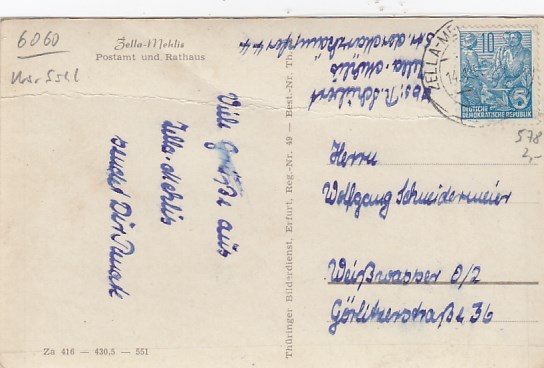 6060
Zella-Mehlis
Postamt und Rathaus
Viele Grüße aus
Zella-Mehlis
sendet Dir
Za 416 — 430,5 — 551
Thüringer Bilderdienst, Erfurt, Reg.-Nr. 49 — Best.-Nr. Th
Abs: R. Schubert
Zella-Mehlis
Str.
ZELLA-ME
14.
10
DEUTSCHE
DEMOKRATISCHE REPUBLIK
578
2,-
Herrn
Wolfgang Schneidermeier
Weißwasser O/L
Görlitzerstraße 36